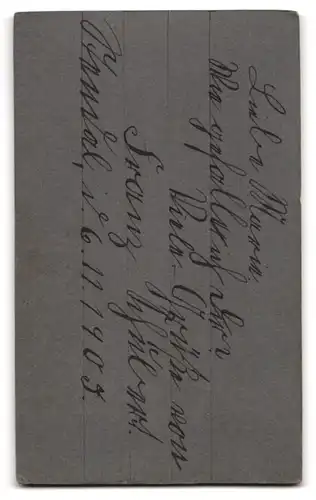 Liebe Maria,
Wie gefalle ich Dir.
Viele Grüße von
Franz
Stendal, d 6.11.1903.